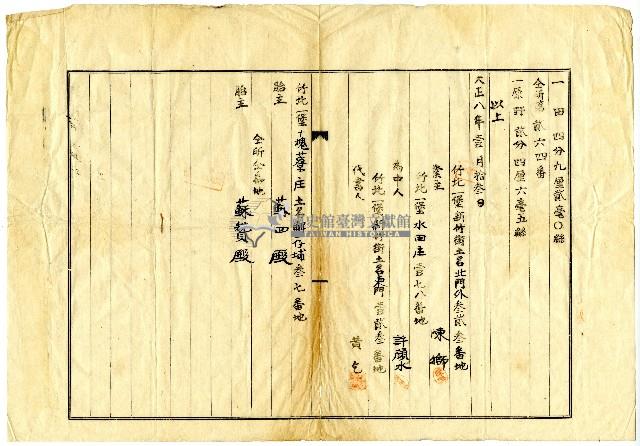 一 田 四分九厘貳毫〇絲
仝所 貳六四番
一 原野 貳分四厘六毫五絲
以上
大正八年壹月拾叁日
竹北一堡新竹街土名北門外叁貳叁番地
業主 陳
竹北一堡水田庄壹七八番地
為中人 許 水
竹北一堡新竹街土名東門壹貳叁番地
代書人 黃乞
竹北一堡 寮庄土名 仔埔叁七番地
胎主 蘇四殿
仝所仝番地
胎主 蘇賛殿
國史館臺灣文獻館
TAIWAN HISTORICA